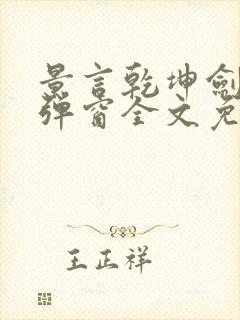 景言乾坤劍
弹窗全文免
王正祥